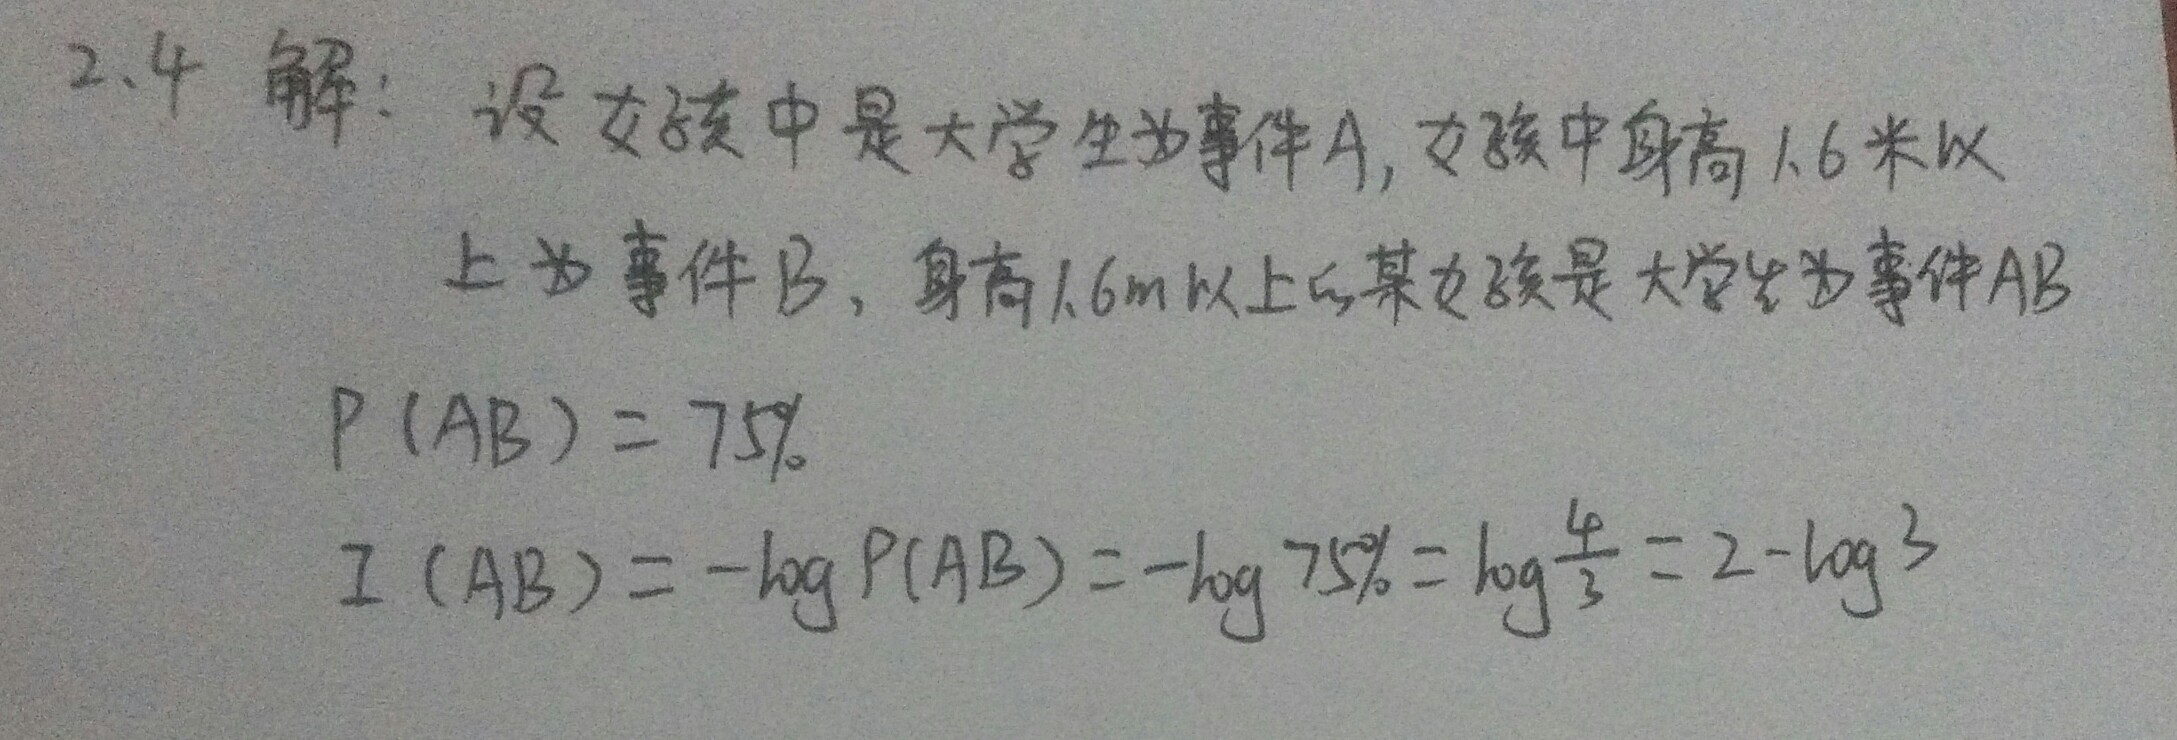 2.4 解: 设女孩中是大学生为事件A, 女孩中身高1.6米以
上为事件B, 身高1.6m以上的某女孩是大学生为事件AB
P(AB) = 75%
I(AB) = -log P(AB) = -log 75% = log 4/3 = 2-log3